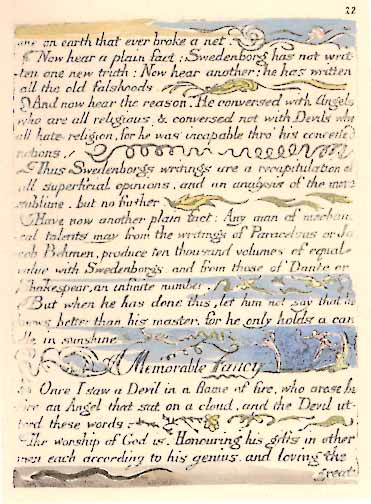 22
one on earth that ever broke a net.
Now hear a plain fact: Swedenborg has not writ-
ten one new truth: Now hear another: he has written
all the old falshoods.
And now hear the reason. He conversed with Angels
who are all religious, & conversed not with Devils who
all hate religion, for he was incapable thro' his conceited
notions.
Thus Swedenborgs writings are a recapitulation of
all superficial opinions, and an analysis of the more
sublime, but no further.
Have now another plain fact: Any man of mechani-
cal talents may from the writings of Paracelsus or Ja-
cob Behmen, produce ten thousand volumes of equal
value with Swedenborg's. and from those of Dante or
Shakespear, an infinite number.
But when he has done this, let him not say that he
knows better than his master, for he only holds a can-
dle in sunshine.
A Memorable Fancy
Once I saw a Devil in a flame of fire, who arose be-
fore an Angel that sat on a cloud, and the Devil ut-
terd these words.
The worship of God is. Honouring his gifts in other
men each according to his genius, and loving the
great-